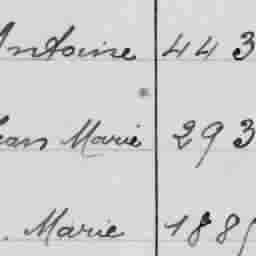 Antoine 443
Jean Marie 293
. Marie 188